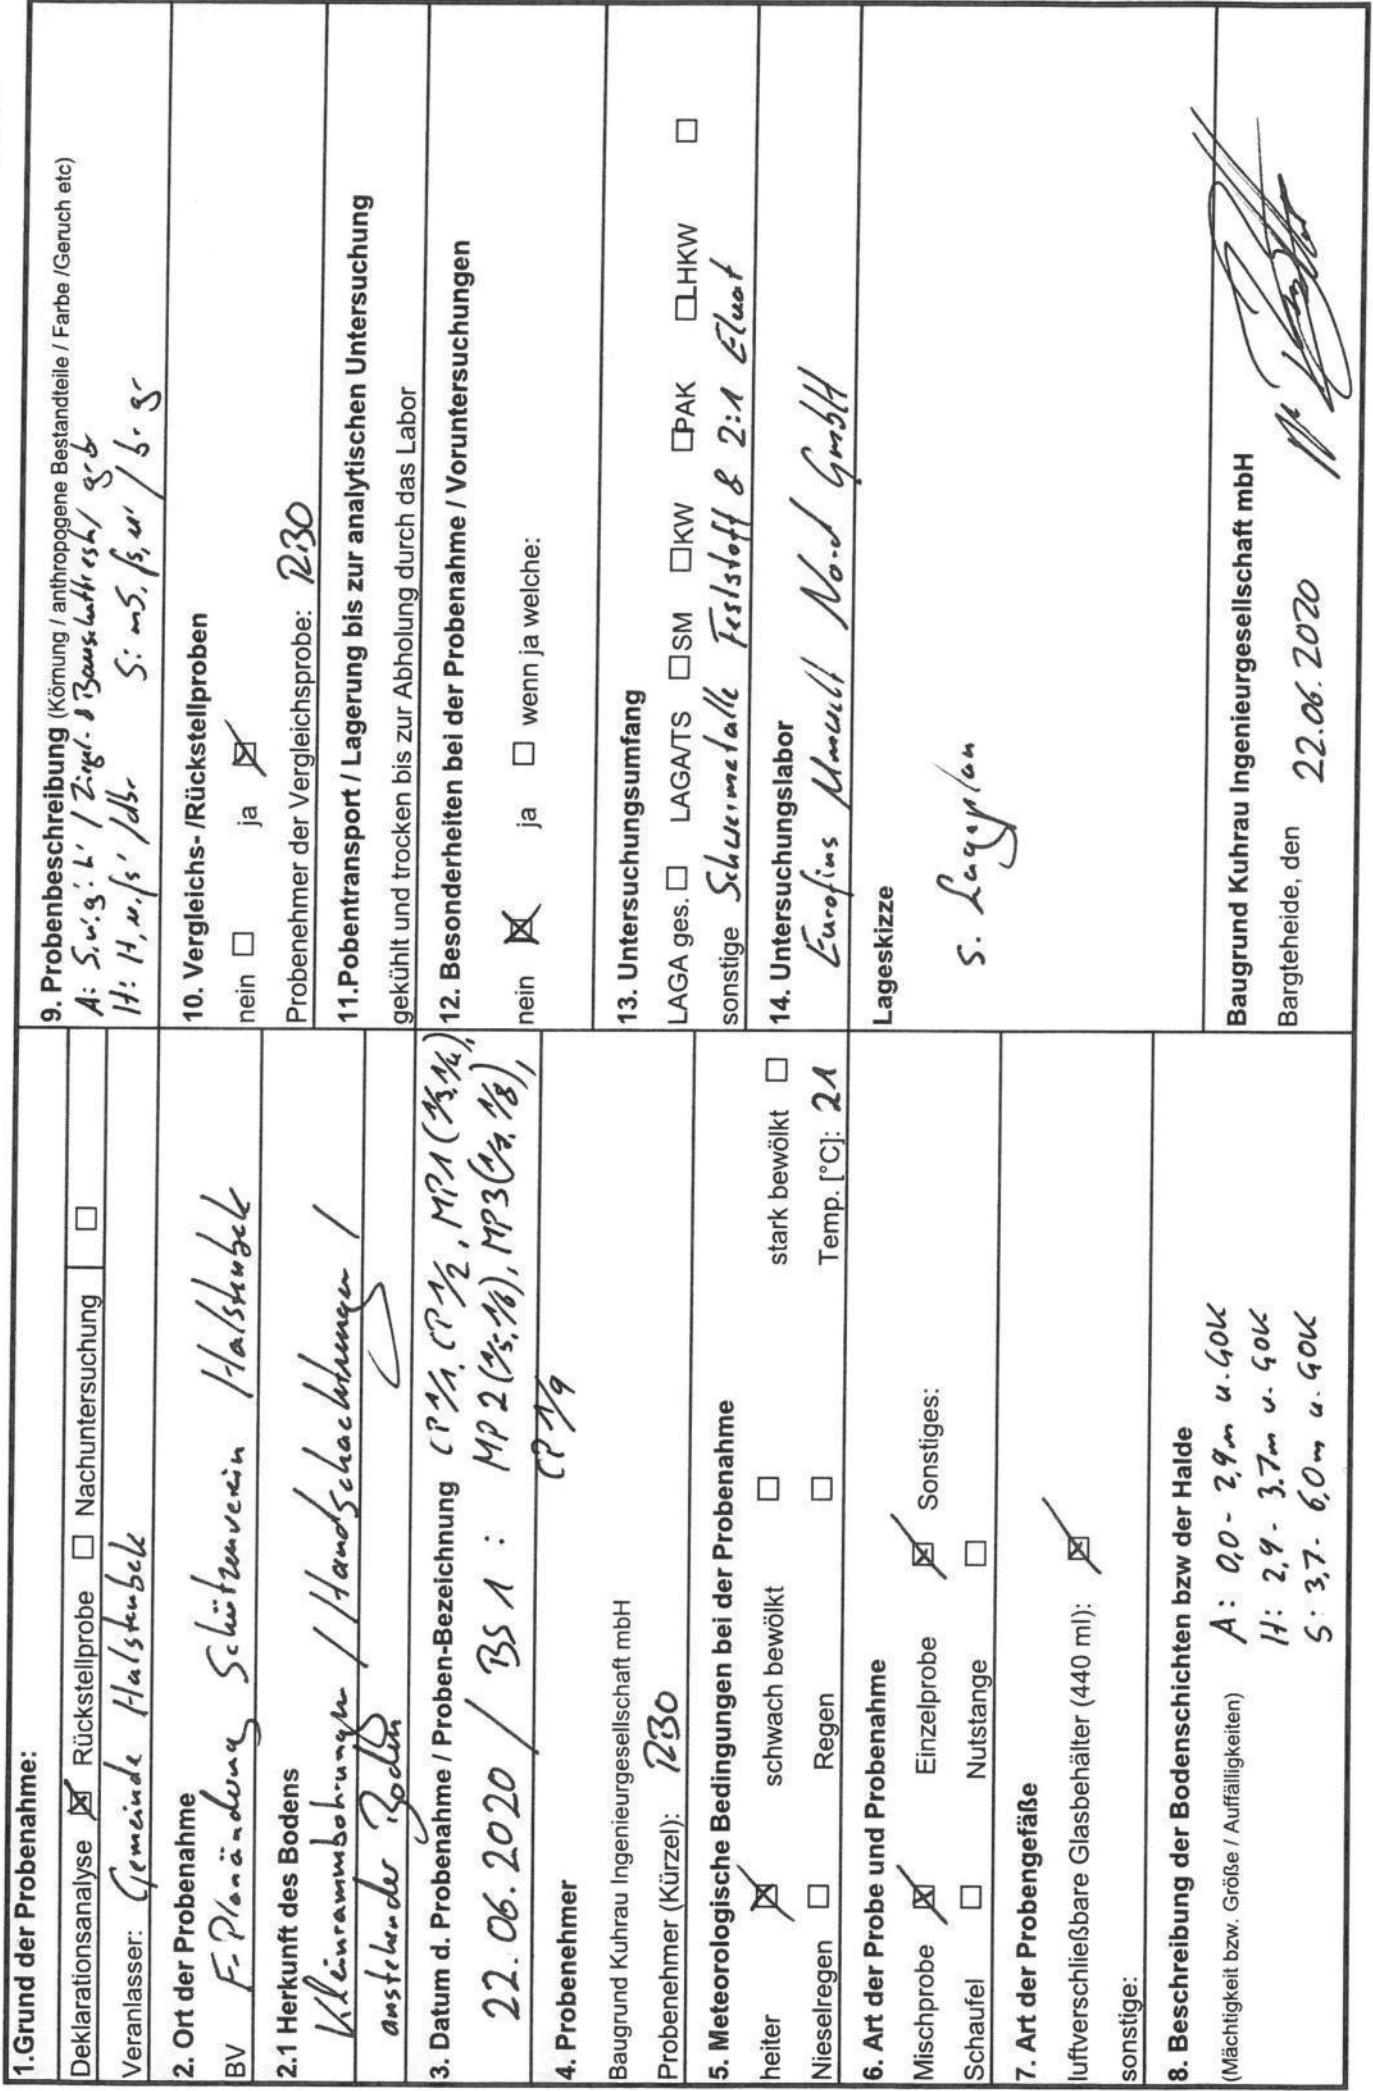 1.Grund der Probenahme:
Deklarationsanalyse ☒ Rückstellprobe ☐ Nachuntersuchung ☐
Veranlasser: Gemeinde Halstenbek
2. Ort der Probenahme
BV F-Planänderung Schützenverein Halstenbek
2.1 Herkunft des Bodens
Kleinrammbohrungen / Handschachtungen /
anstehender Boden
3. Datum d. Probenahme / Proben-Bezeichnung CP 1/1, CP 1/2, MP1 (1/3, 1/4),
22.06.2020 / BS 1 : MP2 (1/5, 1/6), MP3 (1/7, 1/8),
CP 1/9
4. Probenehmer
Baugrund Kuhrau Ingenieurgesellschaft mbH
Probenehmer (Kürzel):
5. Meteorologische Bedingungen bei der Probenahme
heiter ☒ schwach bewölkt ☐ stark bewölkt ☐
Nieselregen ☐ Regen ☐ Temp. [°C]: 21
6. Art der Probe und Probenahme
Mischprobe ☒ Einzelprobe ☒ Sonstiges:
Schaufel ☐ Nutstange ☐
7. Art der Probengefäße
luftverschließbare Glasbehälter (440 ml): ☒
sonstige:
8. Beschreibung der Bodenschichten bzw der Halde
(Mächtigkeit bzw. Größe / Auffälligkeiten) A: 0,0 - 2,9m u. GOK
H: 2,9 - 3.7m u. GOK
S: 3,7 - 6,0m u. GOK
9. Probenbeschreibung (Körnung / anthropogene Bestandteile / Farbe /Geruch etc)
A: S, u', g', h' / Ziegel- & Bauschuttresh/ grb
H: H, u, fs' / dbr S: mS, fs, u' / b. g
10. Vergleichs- /Rückstellproben
nein ☐ ja ☒
Probenehmer der Vergleichsprobe:
11.Pobentransport / Lagerung bis zur analytischen Untersuchung
gekühlt und trocken bis zur Abholung durch das Labor
12. Besonderheiten bei der Probenahme / Voruntersuchungen
nein ☒ ja ☐ wenn ja welche:
13. Untersuchungsumfang
LAGA ges. ☐ LAGA/TS ☐ SM ☐ KW ☐ PAK ☐ LHKW ☐
sonstige Schwermetalle Feststoff & 2:1 Eluat
14. Untersuchungslabor
Eurofins Umwelt Nord GmbH
Lageskizze
s. Lageplan
Baugrund Kuhrau Ingenieurgesellschaft mbH
Bargteheide, den 22.06.2020